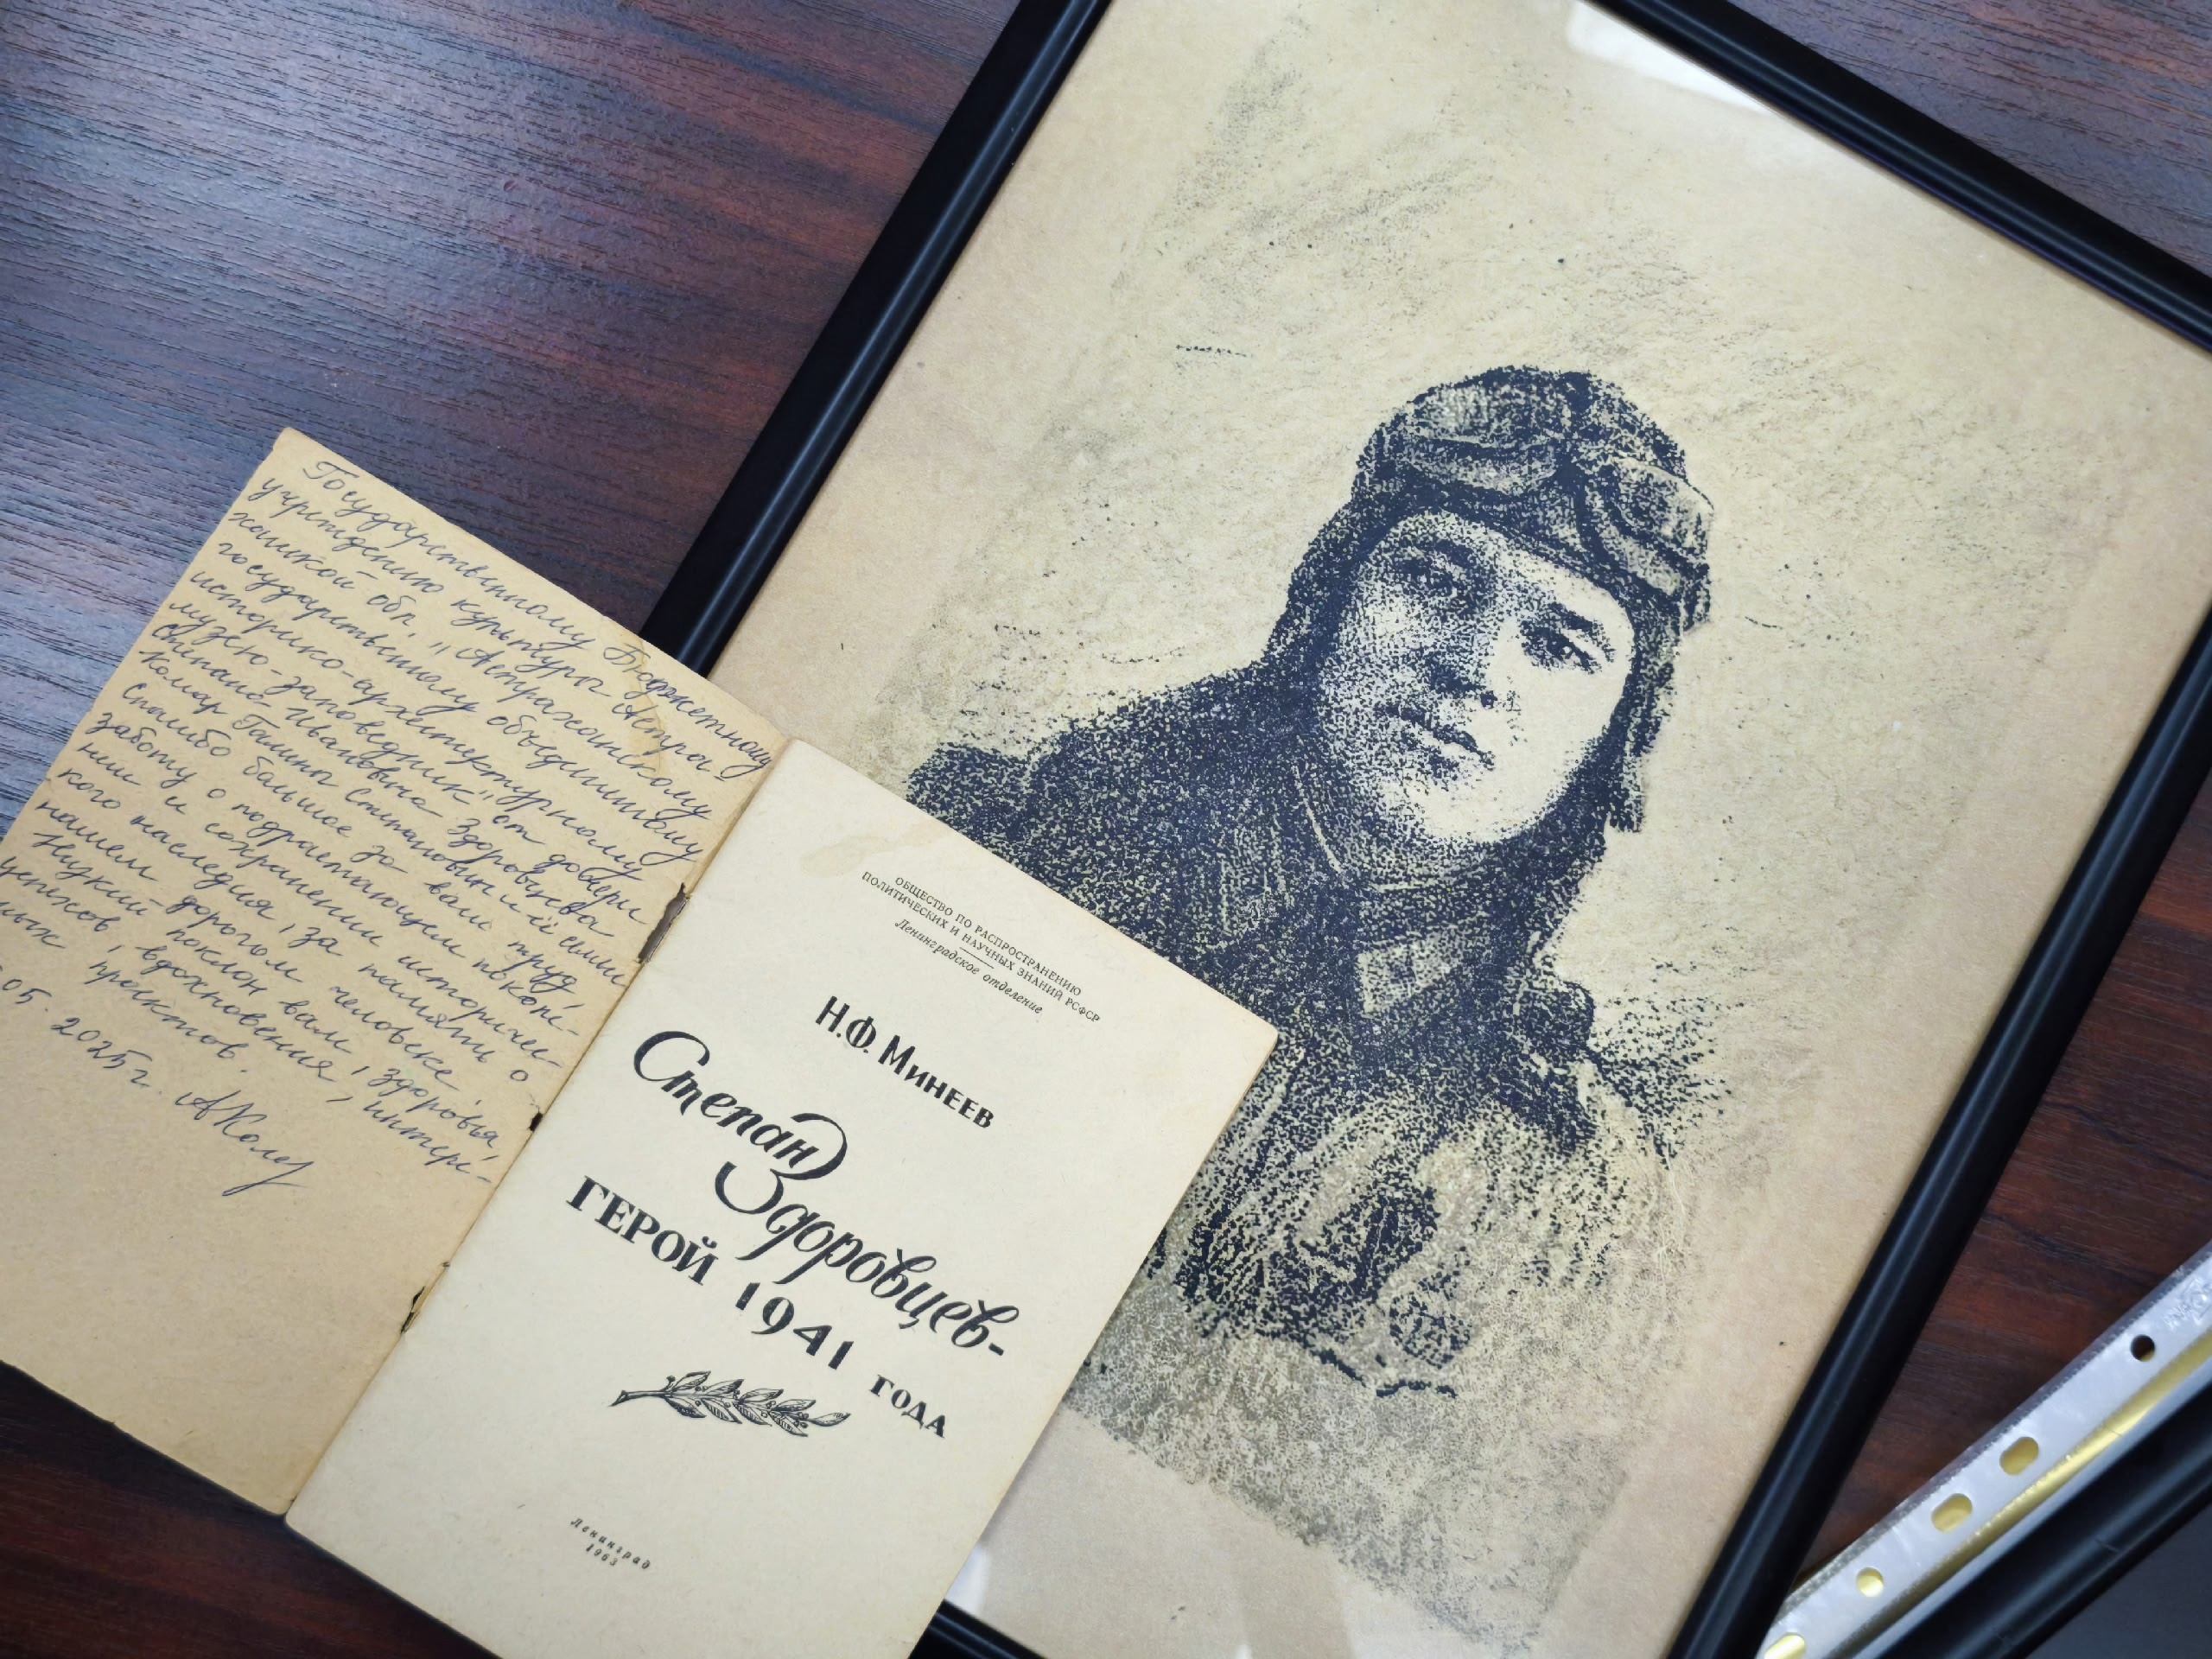 Государственному Бюджетному
учреждению культуры Астра-
ханской обл. "Астраханскому
государственному объединенному
историко-архитектурному
музею-заповеднику" от дочери
Степана Ивановича Здоровцева
Комар Галины Степановны и её семьи
Спасибо большое за ваш труд,
заботу о подрастающем поколе-
нии и сохранении историчес-
кого наследия, за память о
нашем дорогом человеке.
Низкий поклон вам, здоровья,
успехов, вдохновения, интерес-
ных проектов.
05. 2025г.
ОБЩЕСТВО ПО РАСПРОСТРАНЕНИЮ
ПОЛИТИЧЕСКИХ И НАУЧНЫХ ЗНАНИЙ РСФСР
Ленинградское отделение
Н.Ф. Минеев
Степан
Здоровцев-
ГЕРОЙ 1941 ГОДА
Ленинград
1963